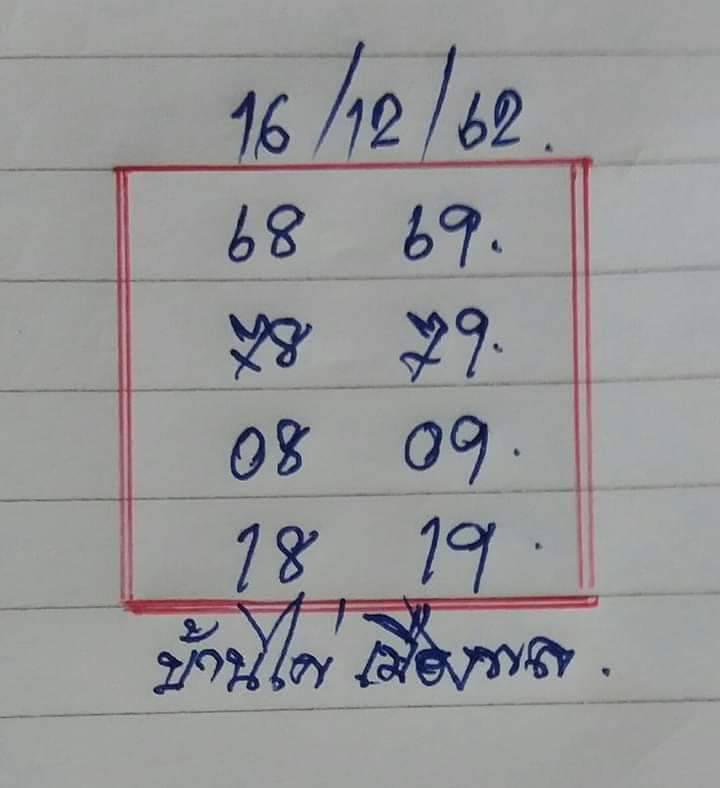 16/12/62.
68 69.
78 79.
08 09.
18 19.
บ้านไผ่ เมืองพล.